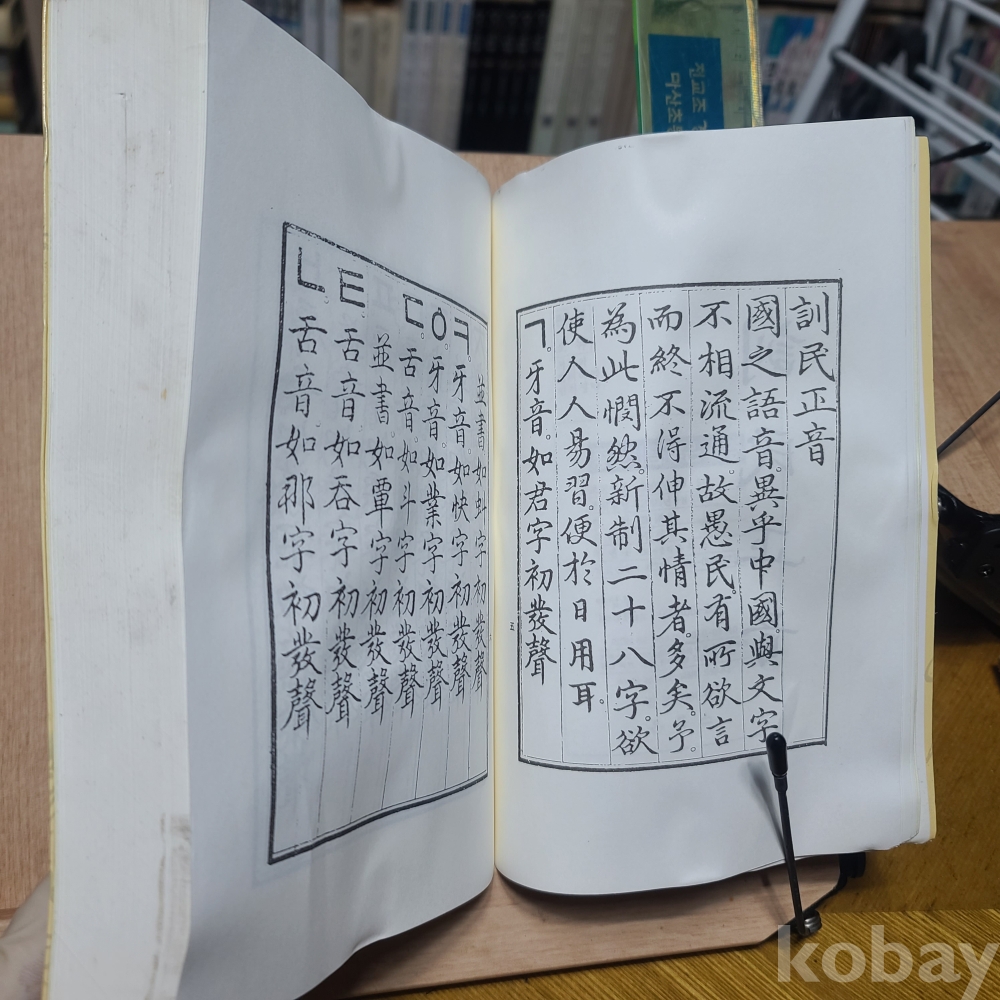 訓民正音
國之語音。異乎中國。與文字
不相流通。故愚民。有所欲言
而終不得伸其情者。多矣。予。
為此憫然。新制二十八字。欲
使人人易習。便於日用耳。
ㄱ。牙音。如君字初發聲
五
並書如虯字初發聲
ㅋ。牙音。如快字初發聲
ㆁ。牙音。如業字初發聲
ㄷ。舌音。如斗字初發聲
並書如覃字初發聲
ㅌ。舌音。如呑字初發聲
ㄴ。舌音。如那字初發聲
kobay